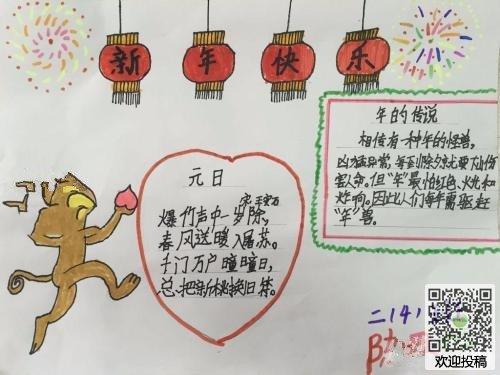 新年快乐
年的传说
相传有一种年的怪兽，
凶猛异常，每到除夕就要大山伤
害人命。但"年"最怕红色、火光和
炸响。因此人们每年需驱赶
"年"兽。
元日
宋 王安石
爆竹声中一岁除，
春风送暖入屠苏。
千门万户曈曈日，
总把新桃换旧符。
二(4)
欢迎投稿